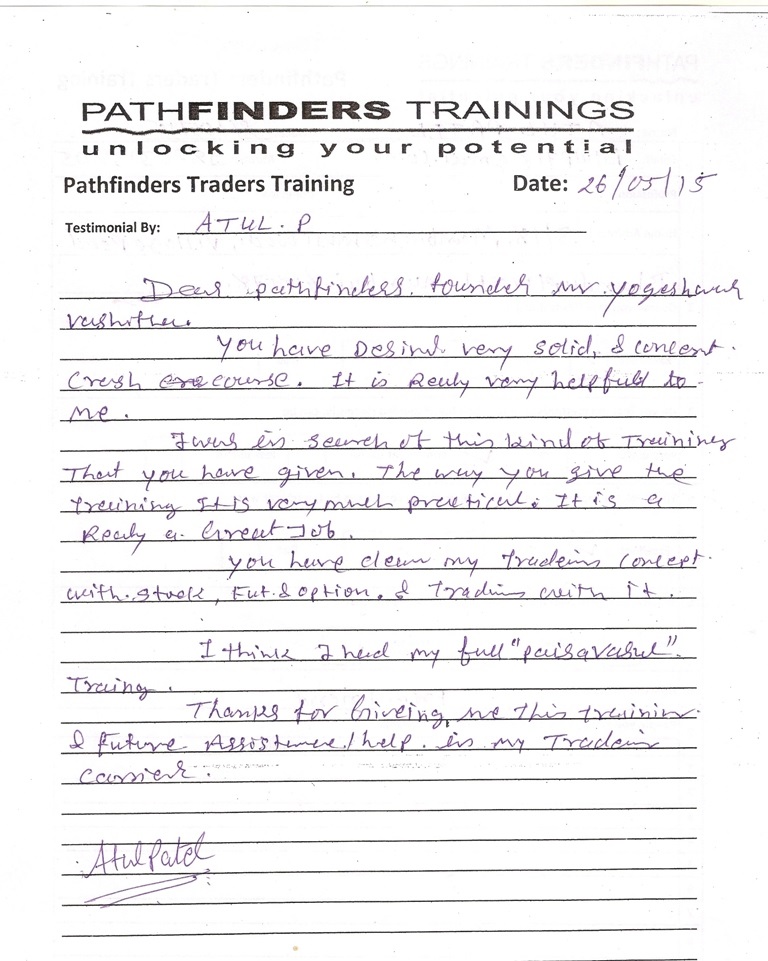 PATHFINDERS TRAININGS
unlocking your potential
Pathfinders Traders Training Date: 26/05/15
Testimonial By: ATUL. P
Dear pathfinders founder mr. yogeshwar
vashistha.
You have Desind very solid, & concept
Crash course. It is Realy very helpfull to
me.
I was in search of this kind of Training
That you have given. The way you give the
training It is very much practical. It is a
Realy a Great Job.
you have clear my Tradein concept
with stock, Fut. & option. & Trading with it.
I think I had my full "paisavasul"
Traing.
Thanks for Giveing me this training
& Future Assistence/help. in my Tradein
carrier.
Atul Patel